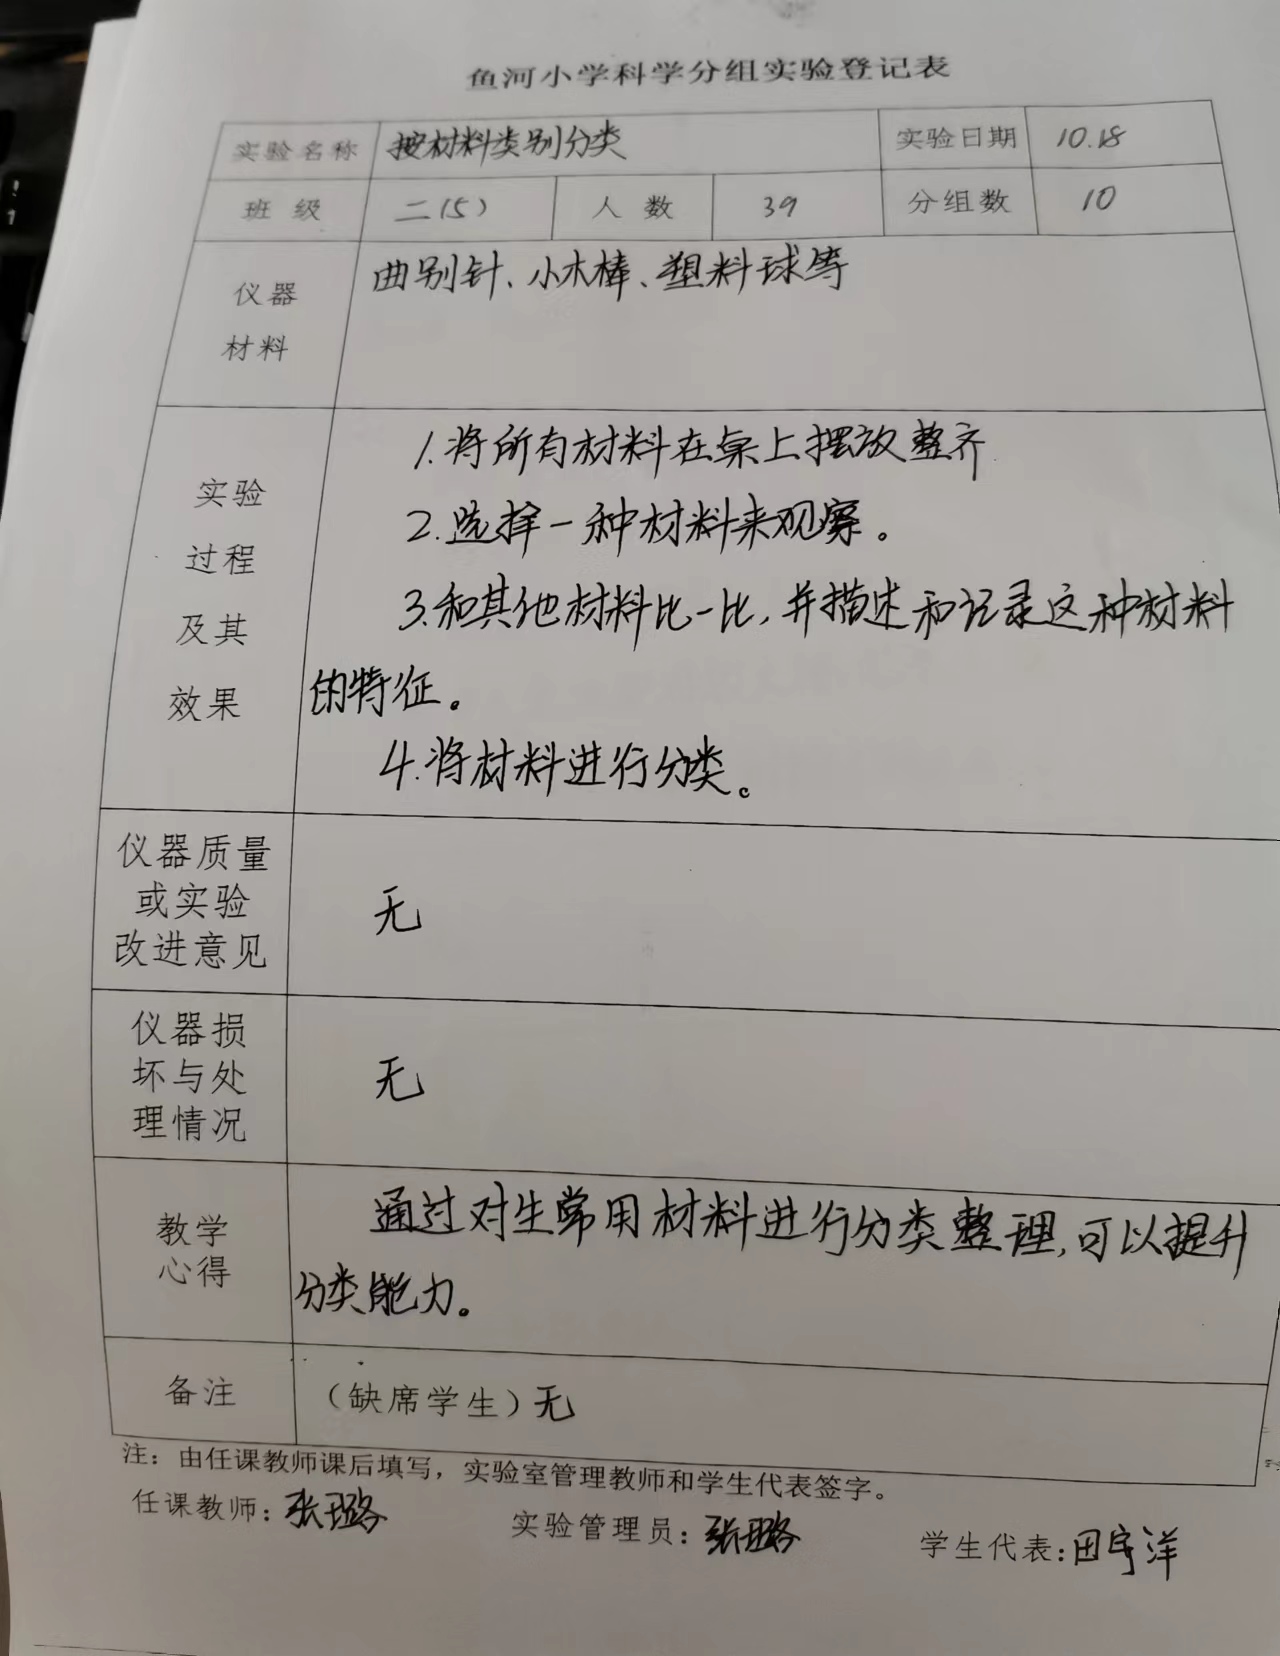 鱼河小学科学分组实验登记表
实验名称 按材料类别分类 实验日期 10.18
班级 二(5) 人数 39 分组数 10
仪器材料 曲别针、小木棒、塑料球等
实验过程及其效果
1.将所有材料在桌上摆放整齐
2.选择一种材料来观察。
3.和其他材料比一比,并描述和记录这种材料
的特征。
4.将材料进行分类。
仪器质量
或实验
改进意见
无
仪器损
坏与处
理情况
无
教学
心得
通过对生常用材料进行分类整理,可以提升
分类能力。
备注 (缺席学生)无
注：由任课教师课后填写，实验室管理教师和学生代表签字。
任课教师：张璐 实验管理员：张璐 学生代表:田宇洋